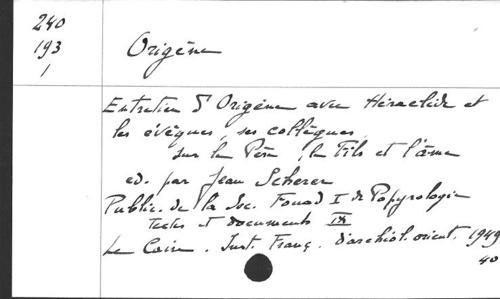 240
193
1
Origène
Entretien d'Origène avec Héraclide et
les évêques, ses collègues,
sur le Père, le Fils et l'âme
ed. par Jean Scherer
Public. de la Soc. Fouad I de Papyrologie
Textes et documents IX
Le Caire. Inst. Franç. d'archéol. orient. 1949
40